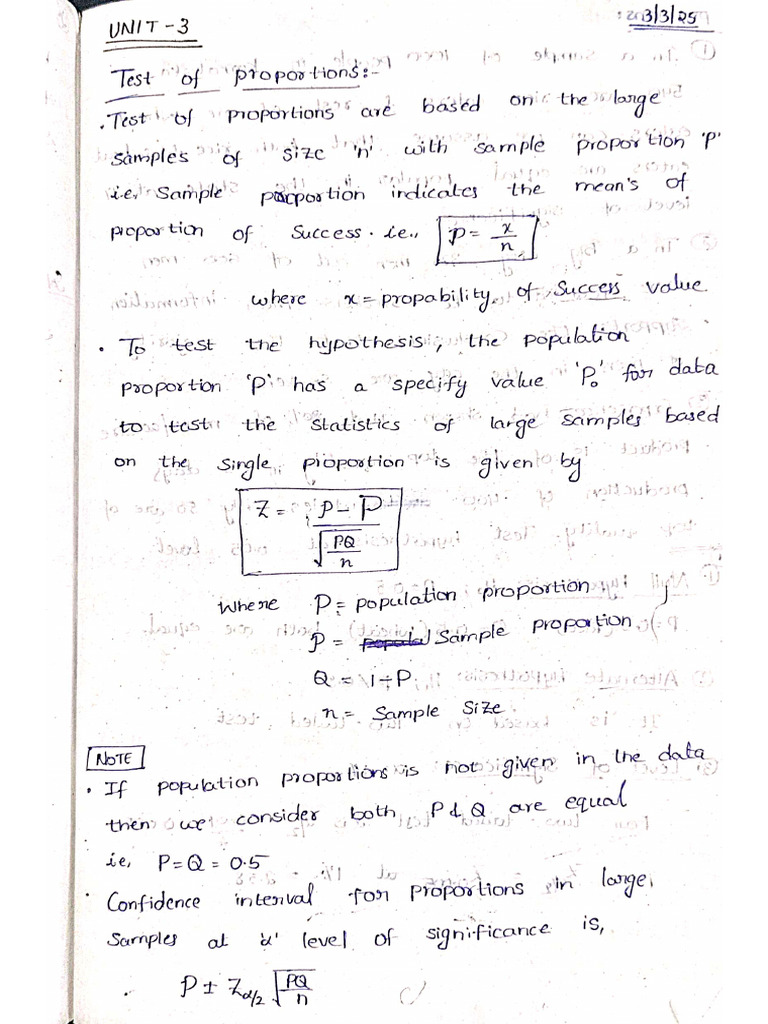 UNIT-3
3/3/25
Test of proportions:-
. Test of proportions are based on the large
samples of size 'n' with sample proportion 'p'
i.e, sample proportion indicates the mean's of
proportion of success. i.e., p = x/n
where x = propability of success value
. To test the hypothesis, the population
proportion 'P' has a specify value 'P₀' for data
to test the statistics of large samples based
on the single proportion is given by
Z = p - P / √(PQ/n)
where P = population proportion
p = sample proportion
Q = 1 - P
n = sample size
NOTE
. If population proportions is not given in the data
then we consider both P & Q are equal
ie, P = Q = 0.5
. Confidence interval for proportions in large
samples at 'α' level of significance is,
. P ± Zα/2 √(PQ/n)